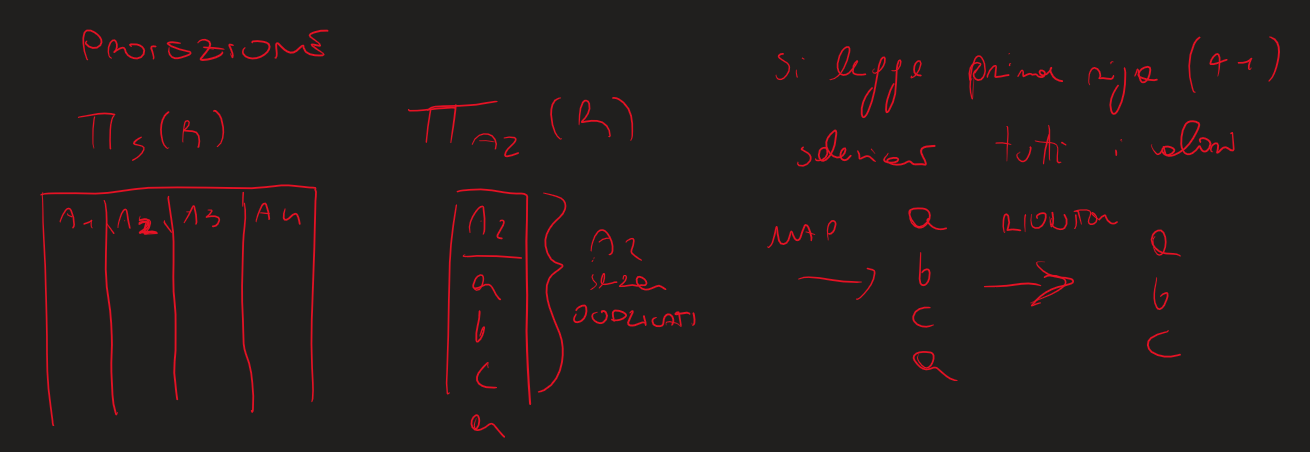 PROIEZIONE
π_S(R)
A1 A2 A3 A4
π_A2(R)
A2
a
b
c
a
A2
senza
DUPLICATI
Si legge prima riga
tutti i valori
MAP
a
b
c
a
a
b
c